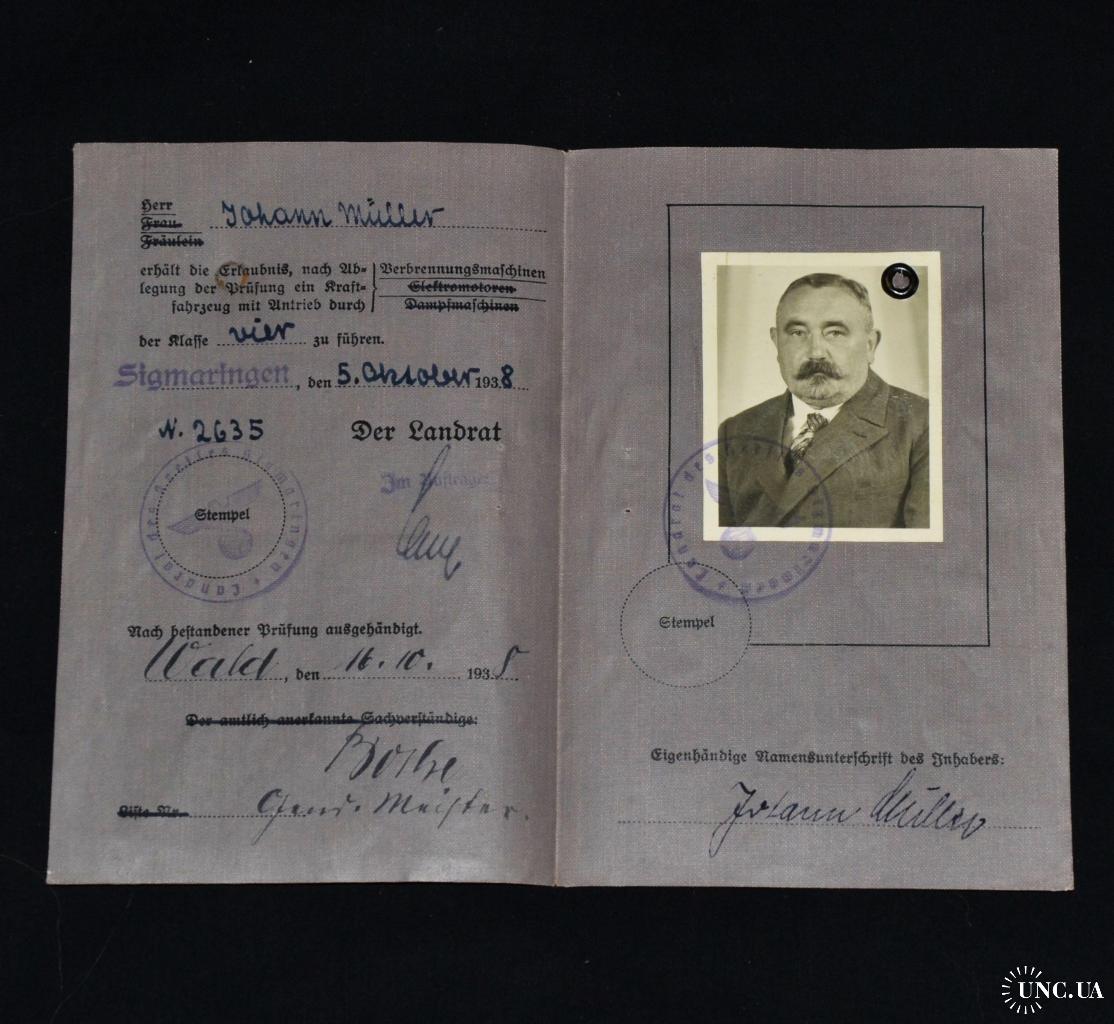 Herr
Frau
Fräulein
Johann Müller
erhält die Erlaubnis, nach Ab-
legung der Prüfung ein Kraft-
fahrzeug mit Antrieb durch
Verbrennungsmaschinen
Elektromotoren
Dampfmaschinen
der Klasse vier zu führen.
Sigmaringen, den 5. Oktober 1938
N. 2635
Der Landrat
Im Auftrage
Landrat des Kreises Sigmaringen
Stempel
Nach bestandener Prüfung ausgehändigt.
Wald, den 16.10. 1938
Der amtlich anerkannte Sachverständige:
Gend. Meister.
Liste Nr.
Landrat des Kreises Sigmaringen
Stempel
Eigenhändige Namensunterschrift des Inhabers:
Johann Müller
UNC.UA